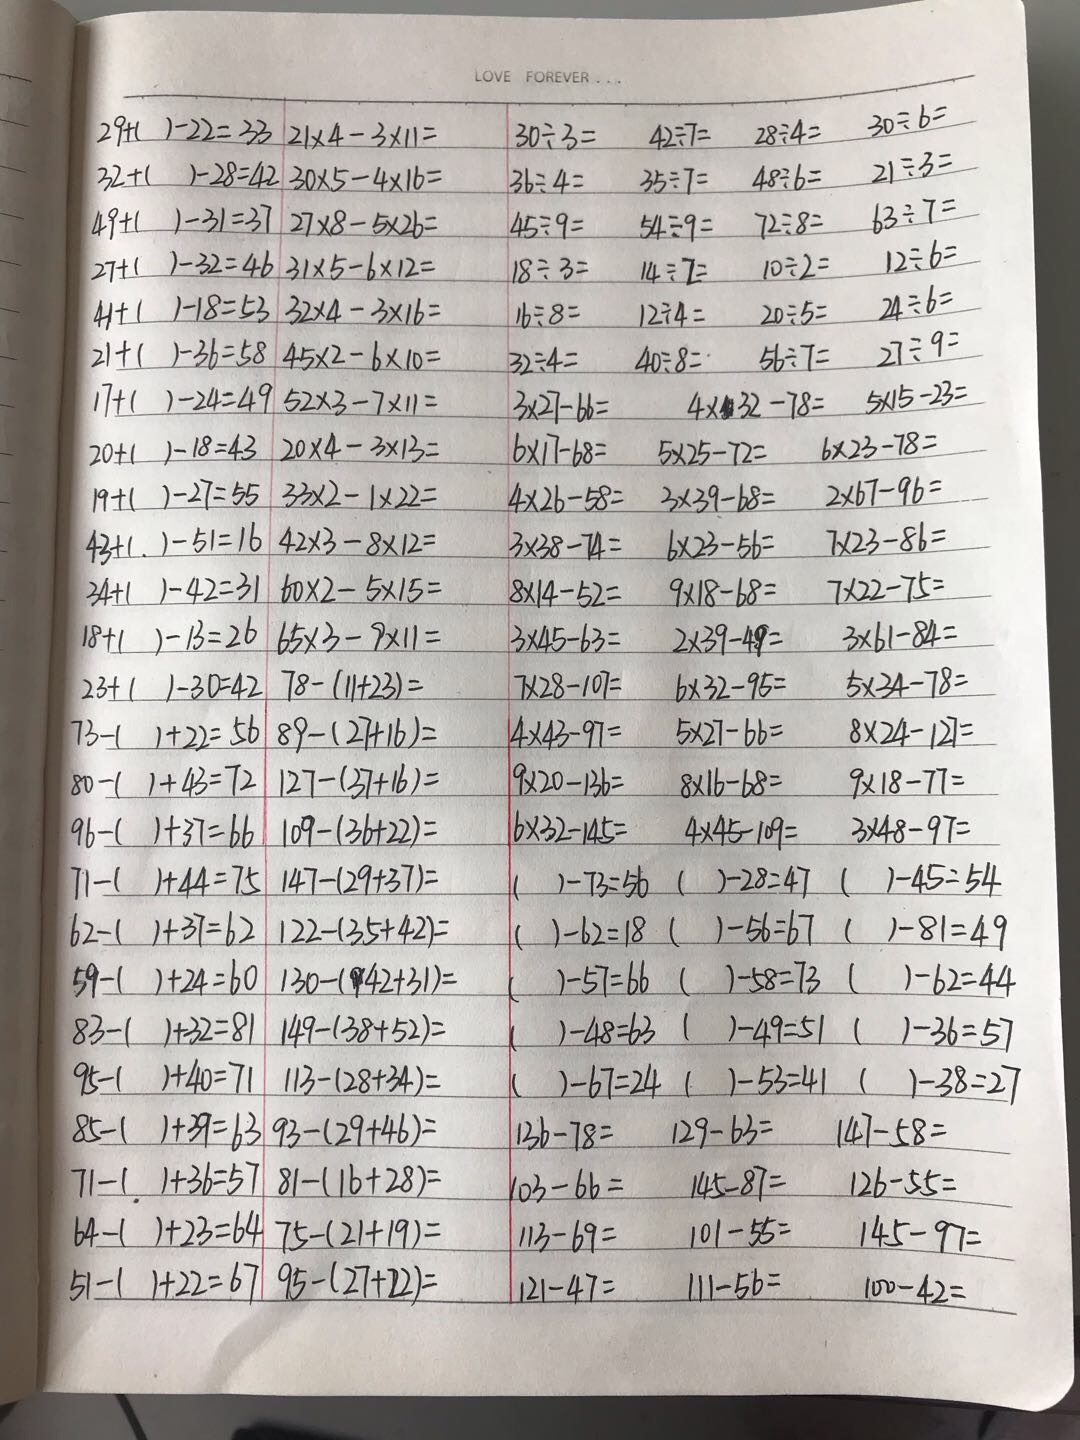 LOVE FOREVER...
29+( )-22=33 21×4-3×11= 30÷3= 42÷7= 28÷4= 30÷6=
32+( )-28=42 30×5-4×16= 36÷4= 35÷7= 48÷6= 21÷3=
49+( )-31=37 27×8-5×26= 45÷9= 54÷9= 72÷8= 63÷7=
27+( )-32=46 31×5-6×12= 18÷3= 14÷7= 10÷2= 12÷6=
41+( )-18=53 32×4-3×16= 16÷8= 12÷4= 20÷5= 24÷6=
21+( )-36=58 45×2-6×10= 32÷4= 40÷8= 56÷7= 27÷9=
17+( )-24=49 52×3-7×11= 3×27-66= 4×32-78= 5×15-23=
20+( )-18=43 20×4-3×13= 6×17-68= 5×25-72= 6×23-78=
19+( )-27=55 33×2-1×22= 4×26-58= 3×39-68= 2×67-96=
43+( )-51=16 42×3-8×12= 3×38-74= 6×23-56= 7×23-86=
34+( )-42=31 60×2-5×15= 8×14-52= 9×18-68= 7×22-75=
18+( )-13=26 65×3-9×11= 3×45-63= 2×39-49= 3×61-84=
23+( )-30=42 78-(11+23)= 7×28-107= 6×32-95= 5×34-78=
73-( )+22=56 89-(27+16)= 4×43-97= 5×27-66= 8×24-127=
80-( )+43=72 127-(37+16)= 9×20-136= 8×16-68= 9×18-77=
96-( )+37=66 109-(36+22)= 6×32-145= 4×45-109= 3×48-97=
71-( )+44=75 147-(29+37)= ( )-73=56 ( )-28=47 ( )-45=54
62-( )+37=62 122-(35+42)= ( )-62=18 ( )-56=67 ( )-81=49
59-( )+24=60 130-(42+31)= ( )-57=66 ( )-58=73 ( )-62=44
83-( )+32=81 149-(38+52)= ( )-48=63 ( )-49=51 ( )-36=57
95-( )+40=71 113-(28+34)= ( )-67=24 ( )-53=41 ( )-38=27
85-( )+39=63 93-(29+46)= 136-78= 129-63= 147-58=
71-( )+36=57 81-(16+28)= 103-66= 145-87= 126-55=
64-( )+23=64 75-(21+19)= 113-69= 101-55= 145-97=
51-( )+22=67 95-(27+22)= 121-47= 111-56= 100-42=